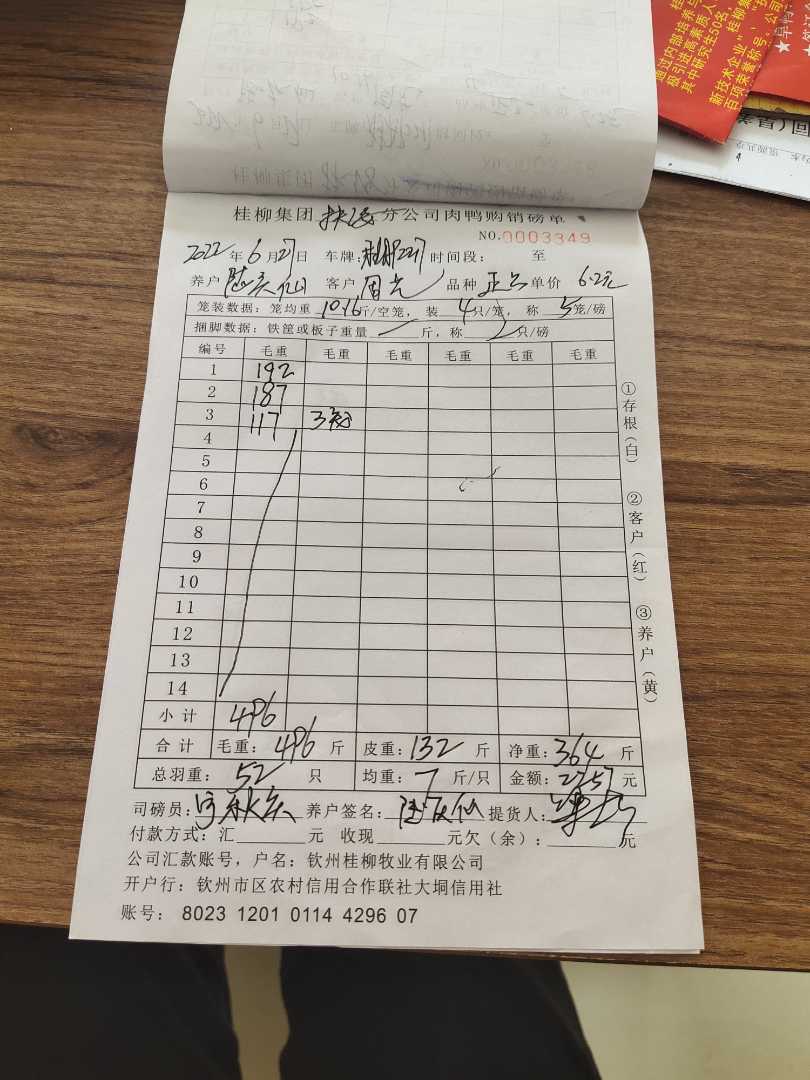 通过内部培养与
级引进高素质人
其中研究生50名,
桂柳集
新技术企业"、"扶
百项荣誉称号。公司
桂柳集团 扶绥 分公司肉鸭购销磅单
NO.0003349
2022 年 6 月 27 日 车牌: 时间段: 至
养户 仙 客户 周光 品种 单价 6.2元
笼装数据: 笼均重 10.16 斤/空笼, 装 4 只/笼, 称 5 笼/磅
捆脚数据: 铁筐或板子重量 斤, 称 只/磅
编号 毛重 毛重 毛重 毛重 毛重 毛重
1 192
2 187
3 117 3
4
5
6
7
8
9
10
11
12
13
14
小计 496
合计 毛重: 496 斤 皮重: 132 斤 净重: 364 斤
总羽重: 52 只 均重: 7 斤/只 金额: 2257 元
司磅员: 养户签名: 仙 提货人:
付款方式: 汇 元 收现 元欠(余): 元
公司汇款账号, 户名: 钦州桂柳牧业有限公司
开户行: 钦州市区农村信用合作联社大垌信用社
账号: 8023 1201 0114 4296 07
①存根(白)
②客户(红)
③养户(黄)